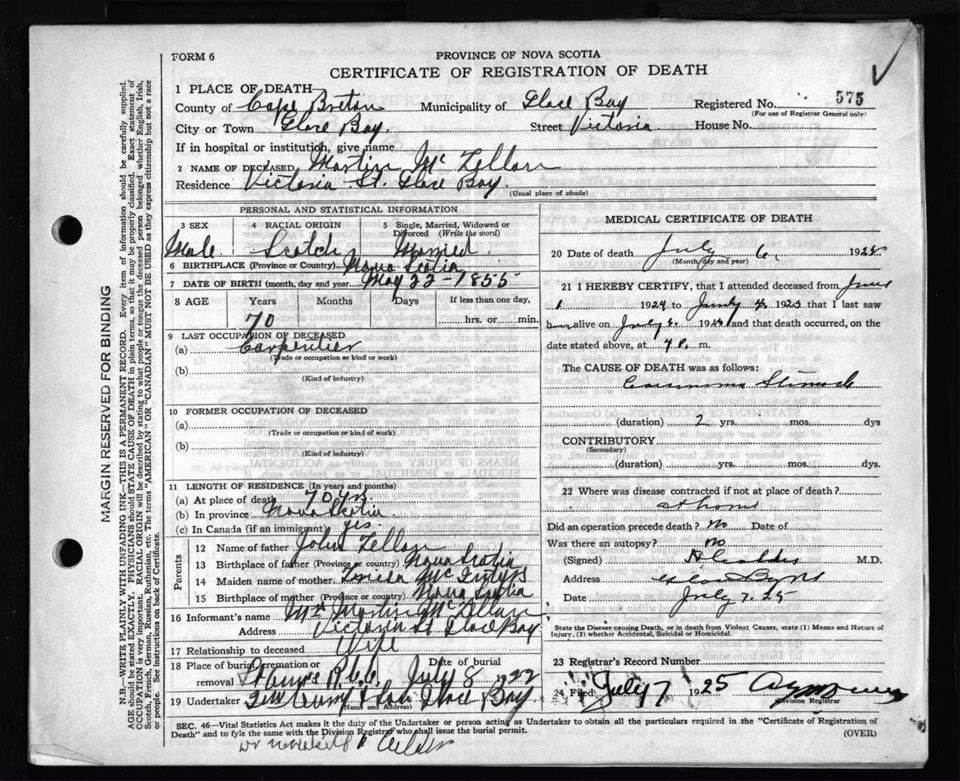 FORM 6
PROVINCE OF NOVA SCOTIA
CERTIFICATE OF REGISTRATION OF DEATH
1 PLACE OF DEATH
County of Cape Breton Municipality of Glace Bay Registered No. 575
(For use of Registrar General only)
City or Town Glace Bay. Street Victoria House No.
If in hospital or institution, give name
2 NAME OF DECEASED Martin McLellan
Residence Victoria St. Glace Bay.
(Usual place of abode)
PERSONAL AND STATISTICAL INFORMATION
3 SEX 4 RACIAL ORIGIN 5 Single, Married, Widowed or Divorced (Write the word)
Male Scotch Married
6 BIRTHPLACE (Province or Country) Nova Scotia
7 DATE OF BIRTH (month, day and year) May 22 - 1855
8 AGE Years Months Days If less than one day,
70 hrs. or min.
9 LAST OCCUPATION OF DECEASED
(a) Carpentier
(Trade or occupation or kind of work)
(b)
(Kind of industry)
10 FORMER OCCUPATION OF DECEASED
(a)
(Trade or occupation or kind of work)
(b)
(Kind of industry)
11 LENGTH OF RESIDENCE (In years and months)
(a) At place of death 70 yrs
(b) In province Nova Scotia
(c) In Canada (if an immigrant) yes.
Parents
12 Name of father John
13 Birthplace of father (Province or country) Nova Scotia
14 Maiden name of mother
15 Birthplace of mother (Province or country) Nova Scotia
16 Informant's name Mrs Martin McLellan
Address Victoria St Glace Bay
17 Relationship to deceased Wife
18 Place of burial, cremation or removal Date of burial
July 8 1922
19 Undertaker Glace Bay
(Name and Address)
MEDICAL CERTIFICATE OF DEATH
20 Date of death July 6, 1925
(Month, day and year)
21 I HEREBY CERTIFY, that I attended deceased from June
1 1924 to July 1925 that I last saw
him alive on July 192 and that death occurred, on
the date stated above, at m.
The CAUSE OF DEATH was as follows:
Carcinoma Stomach
(duration) 2 yrs. mos. dys
CONTRIBUTORY
(Secondary)
(duration) yrs. mos. dys
22 Where was disease contracted if not at place of death?
at home
Did an operation precede death? No Date of
Was there an autopsy? No.
(Signed) M.D.
Address
Date July 7. 25
State the Disease causing Death, or in death from Violent Causes, state (1) Means and Nature of
Injury, (2) whether Accidental, Suicidal or Homicidal.
23 Registrar's Record Number
24 Filed July 7 1925
Division Registrar
SEC. 46—Vital Statistics Act makes it the duty of the Undertaker or person acting as Undertaker to obtain all the particulars required in the "Certificate of Registration of
Death" and to fyle the same with the Division Registrar who shall issue the burial permit. (OVER)
MARGIN RESERVED FOR BINDING
N.B.—WRITE PLAINLY WITH UNFADING INK—THIS IS A PERMANENT RECORD. Every item of information should be carefully supplied.
AGE should be stated EXACTLY. PHYSICIANS should STATE CAUSE OF DEATH in plain terms, so that it may be properly classified. Exact statement of
OCCUPATION is very important. RACIAL ORIGIN will be described by stating to what people or tongue the deceased person belonged whether English, Irish,
Scotch, French, German, Russian, Ruthenian, etc. The terms "AMERICAN" OR "CANADIAN" MUST NOT BE USED as they express citizenship but not a race
or people. See instructions on back of Certificate.